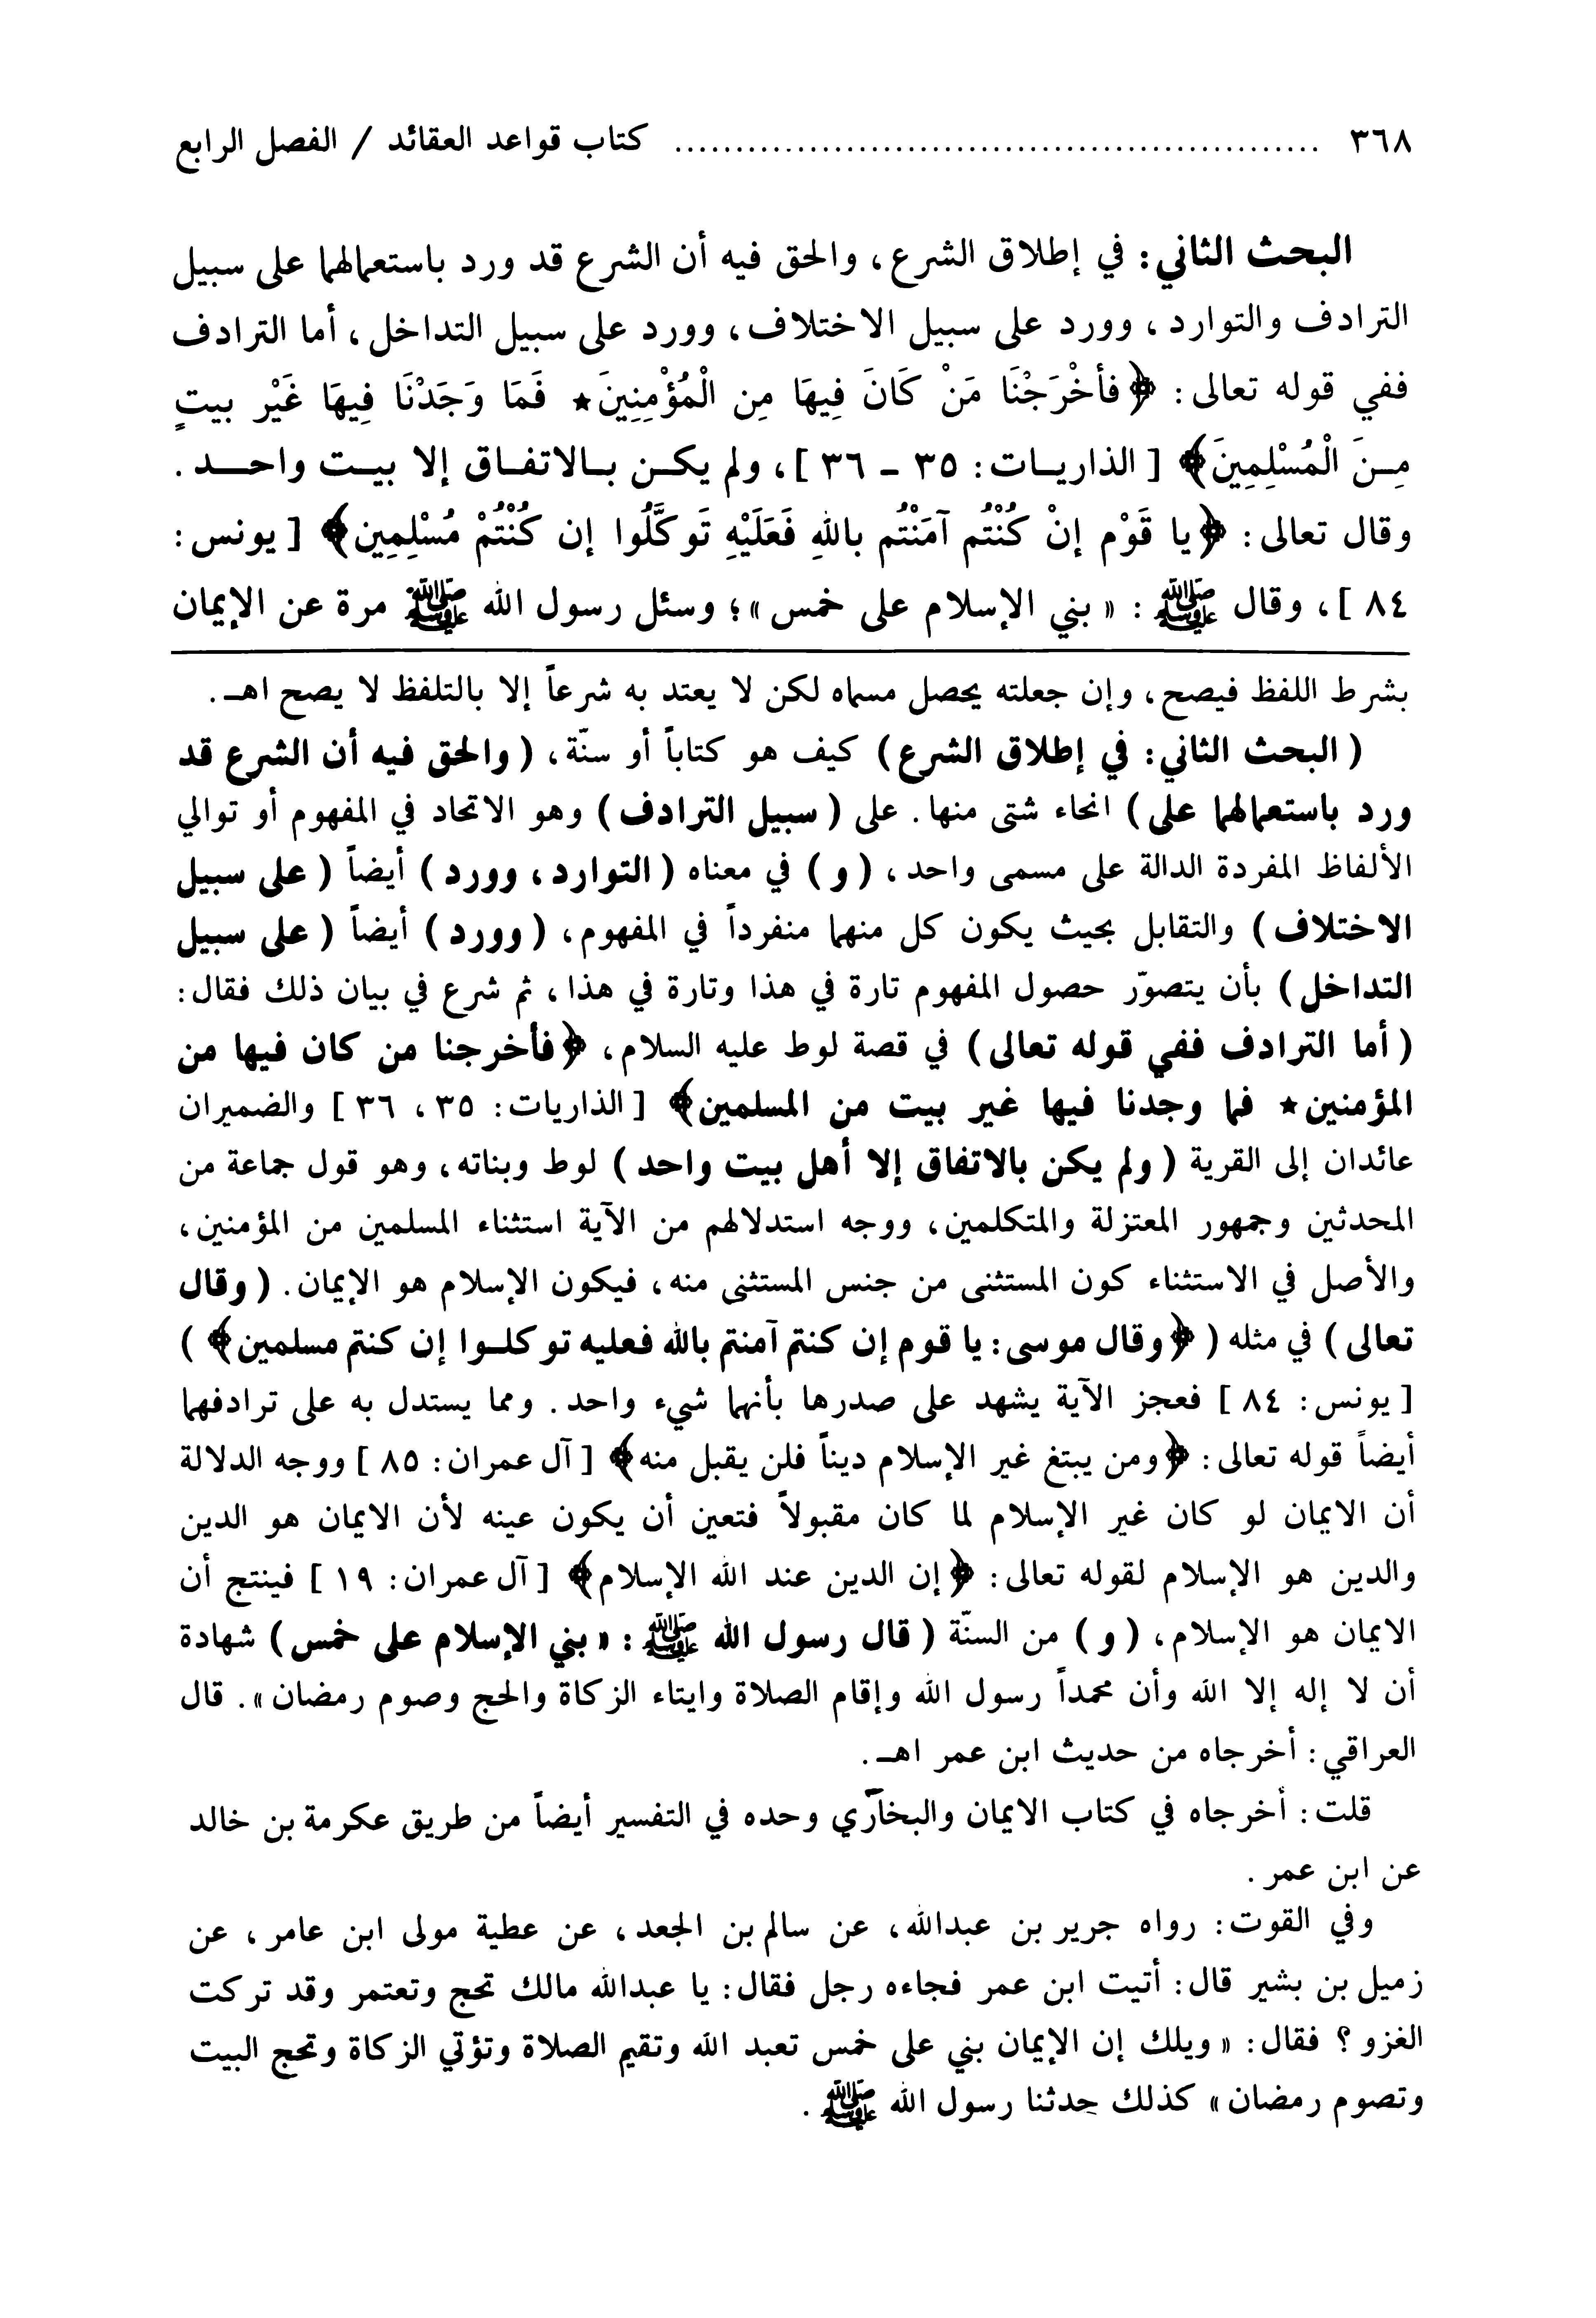 ٣٦٨ ..................................................... كتاب قواعد العقائد / الفصل الرابع
البحث الثاني: في إطلاق الشرع، والحق فيه أن الشرع قد ورد باستعمالهما على سبيل
الترادف والتوارد، وورد على سبيل الاختلاف، وورد على سبيل التداخل، أما الترادف
ففي قوله تعالى: ﴿فأخْرَجْنَا مَنْ كَانَ فِيهَا مِن الْمُؤْمِنِينَ★ فَمَا وَجَدْنَا فِيهَا غَيْر بيتٍ
مِـنَ الْمُسْلِمِينَ﴾ [الذاريـات: ٣٥ ـ ٣٦]، ولم يكـن بـالاتفـاق إلا بيـت واحـــد.
وقال تعالى: ﴿يا قَوْم إنْ كُنْتُم آمَنْتُم باللهِ فَعَلَيْهِ تَوكَّلُوا إن كُنْتُمْ مُسْلِمِين﴾ [يونس:
٨٤]، وقال ﷺ: «بني الإسلام على خمس»؛ وسئل رسول الله ﷺ مرة عن الإيمان
بشرط اللفظ فيصح، وإن جعلته يحصل مسماه لكن لا يعتد به شرعاً إلا بالتلفظ لا يصح اهـ.
(البحث الثاني: في إطلاق الشرع) كيف هو كتاباً أو سنّة، (والحق فيه أن الشرع قد
ورد باستعمالهما على) انحاء شتى منها. على (سبيل الترادف) وهو الاتحاد في المفهوم أو توالي
الألفاظ المفردة الدالة على مسمى واحد، (و) في معناه (التوارد، وورد) أيضاً (على سبيل
الاختلاف) والتقابل بحيث يكون كل منهما منفرداً في المفهوم، (وورد) أيضاً (على سبيل
التداخل) بأن يتصوّر حصول المفهوم تارة في هذا وتارة في هذا، ثم شرع في بيان ذلك فقال:
(أما الترادف ففي قوله تعالى) في قصة لوط عليه السلام، ﴿فأخرجنا من كان فيها من
المؤمنين★ فما وجدنا فيها غير بيت من المسلمين﴾ [الذاريات: ٣٥، ٣٦] والضميران
عائدان إلى القرية (ولم يكن بالاتفاق إلا أهل بيت واحد) لوط وبناته، وهو قول جماعة من
المحدثين وجمهور المعتزلة والمتكلمين، ووجه استدلالهم من الآية استثناء المسلمين من المؤمنين،
والأصل في الاستثناء كون المستثنى من جنس المستثنى منه، فيكون الإسلام هو الإيمان. (وقال
تعالى) في مثله (﴿وقال موسى: يا قوم إن كنتم آمنتم بالله فعليه توكلـوا إن كنتم مسلمين﴾)
[يونس: ٨٤] فعجز الآية يشهد على صدرها بأنهما شيء واحد. ومما يستدل به على ترادفهما
أيضاً قوله تعالى: ﴿ومن يبتغ غير الإسلام ديناً فلن يقبل منه﴾ [آل عمران: ٨٥] ووجه الدلالة
أن الايمان لو كان غير الإسلام لما كان مقبولاً فتعين أن يكون عينه لأن الايمان هو الدين
والدين هو الإسلام لقوله تعالى: ﴿إن الدين عند الله الإسلام﴾ [آل عمران: ١٩] فينتج أن
الايمان هو الإسلام، (و) من السنّة (قال رسول الله ﷺ: «بني الإسلام على خمس) شهادة
أن لا إله إلا الله وأن محمداً رسول الله وإقام الصلاة وايتاء الزكاة والحج وصوم رمضان». قال
العراقي: أخرجاه من حديث ابن عمر اهـ.
قلت: أخرجاه في كتاب الايمان والبخاري وحده في التفسير أيضاً من طريق عكرمة بن خالد
عن ابن عمر.
وفي القوت: رواه جرير بن عبدالله، عن سالم بن الجعد، عن عطية مولى ابن عامر، عن
زميل بن بشير قال: أتيت ابن عمر فجاءه رجل فقال: يا عبدالله مالك تحج وتعتمر وقد تركت
الغزو؟ فقال: «ويلك إن الإيمان بني على خمس تعبد الله وتقيم الصلاة وتؤتي الزكاة وتحج البيت
وتصوم رمضان» كذلك حدثنا رسول الله ﷺ.